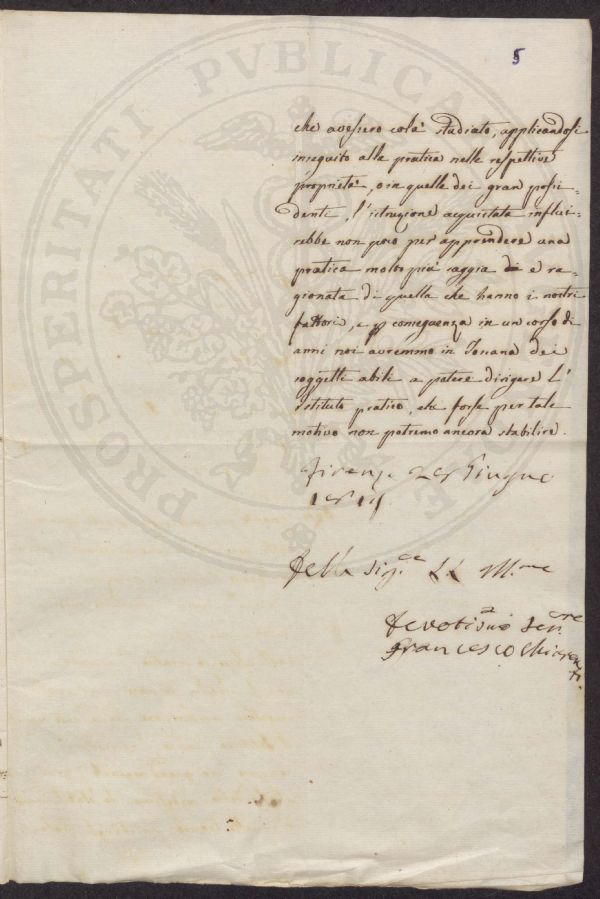 5
che avessero colà studiato, applicandosi
inseguito alla pratica nelle respettive
proprietà, o in quelle dei gran possi=
denti, l'istruzione acquistata influi=
rebbe non poco per apprendere una
pratica molto più saggia e ra=
gionata di quella che hanno i nostri
fattori, e p conseguenza in un corso di
anni noi avremmo in Toscana dei
soggetti abili a potere dirigere L'
Istituto pratico, che forse per tale
motivo non potremo ancora stabilire.
Firenze Giugno
Delle Sig.e LL Ill.me
Devotis.mo Ser.re
Francesco Chiarenti
PROSPERITATI PVBLICAE